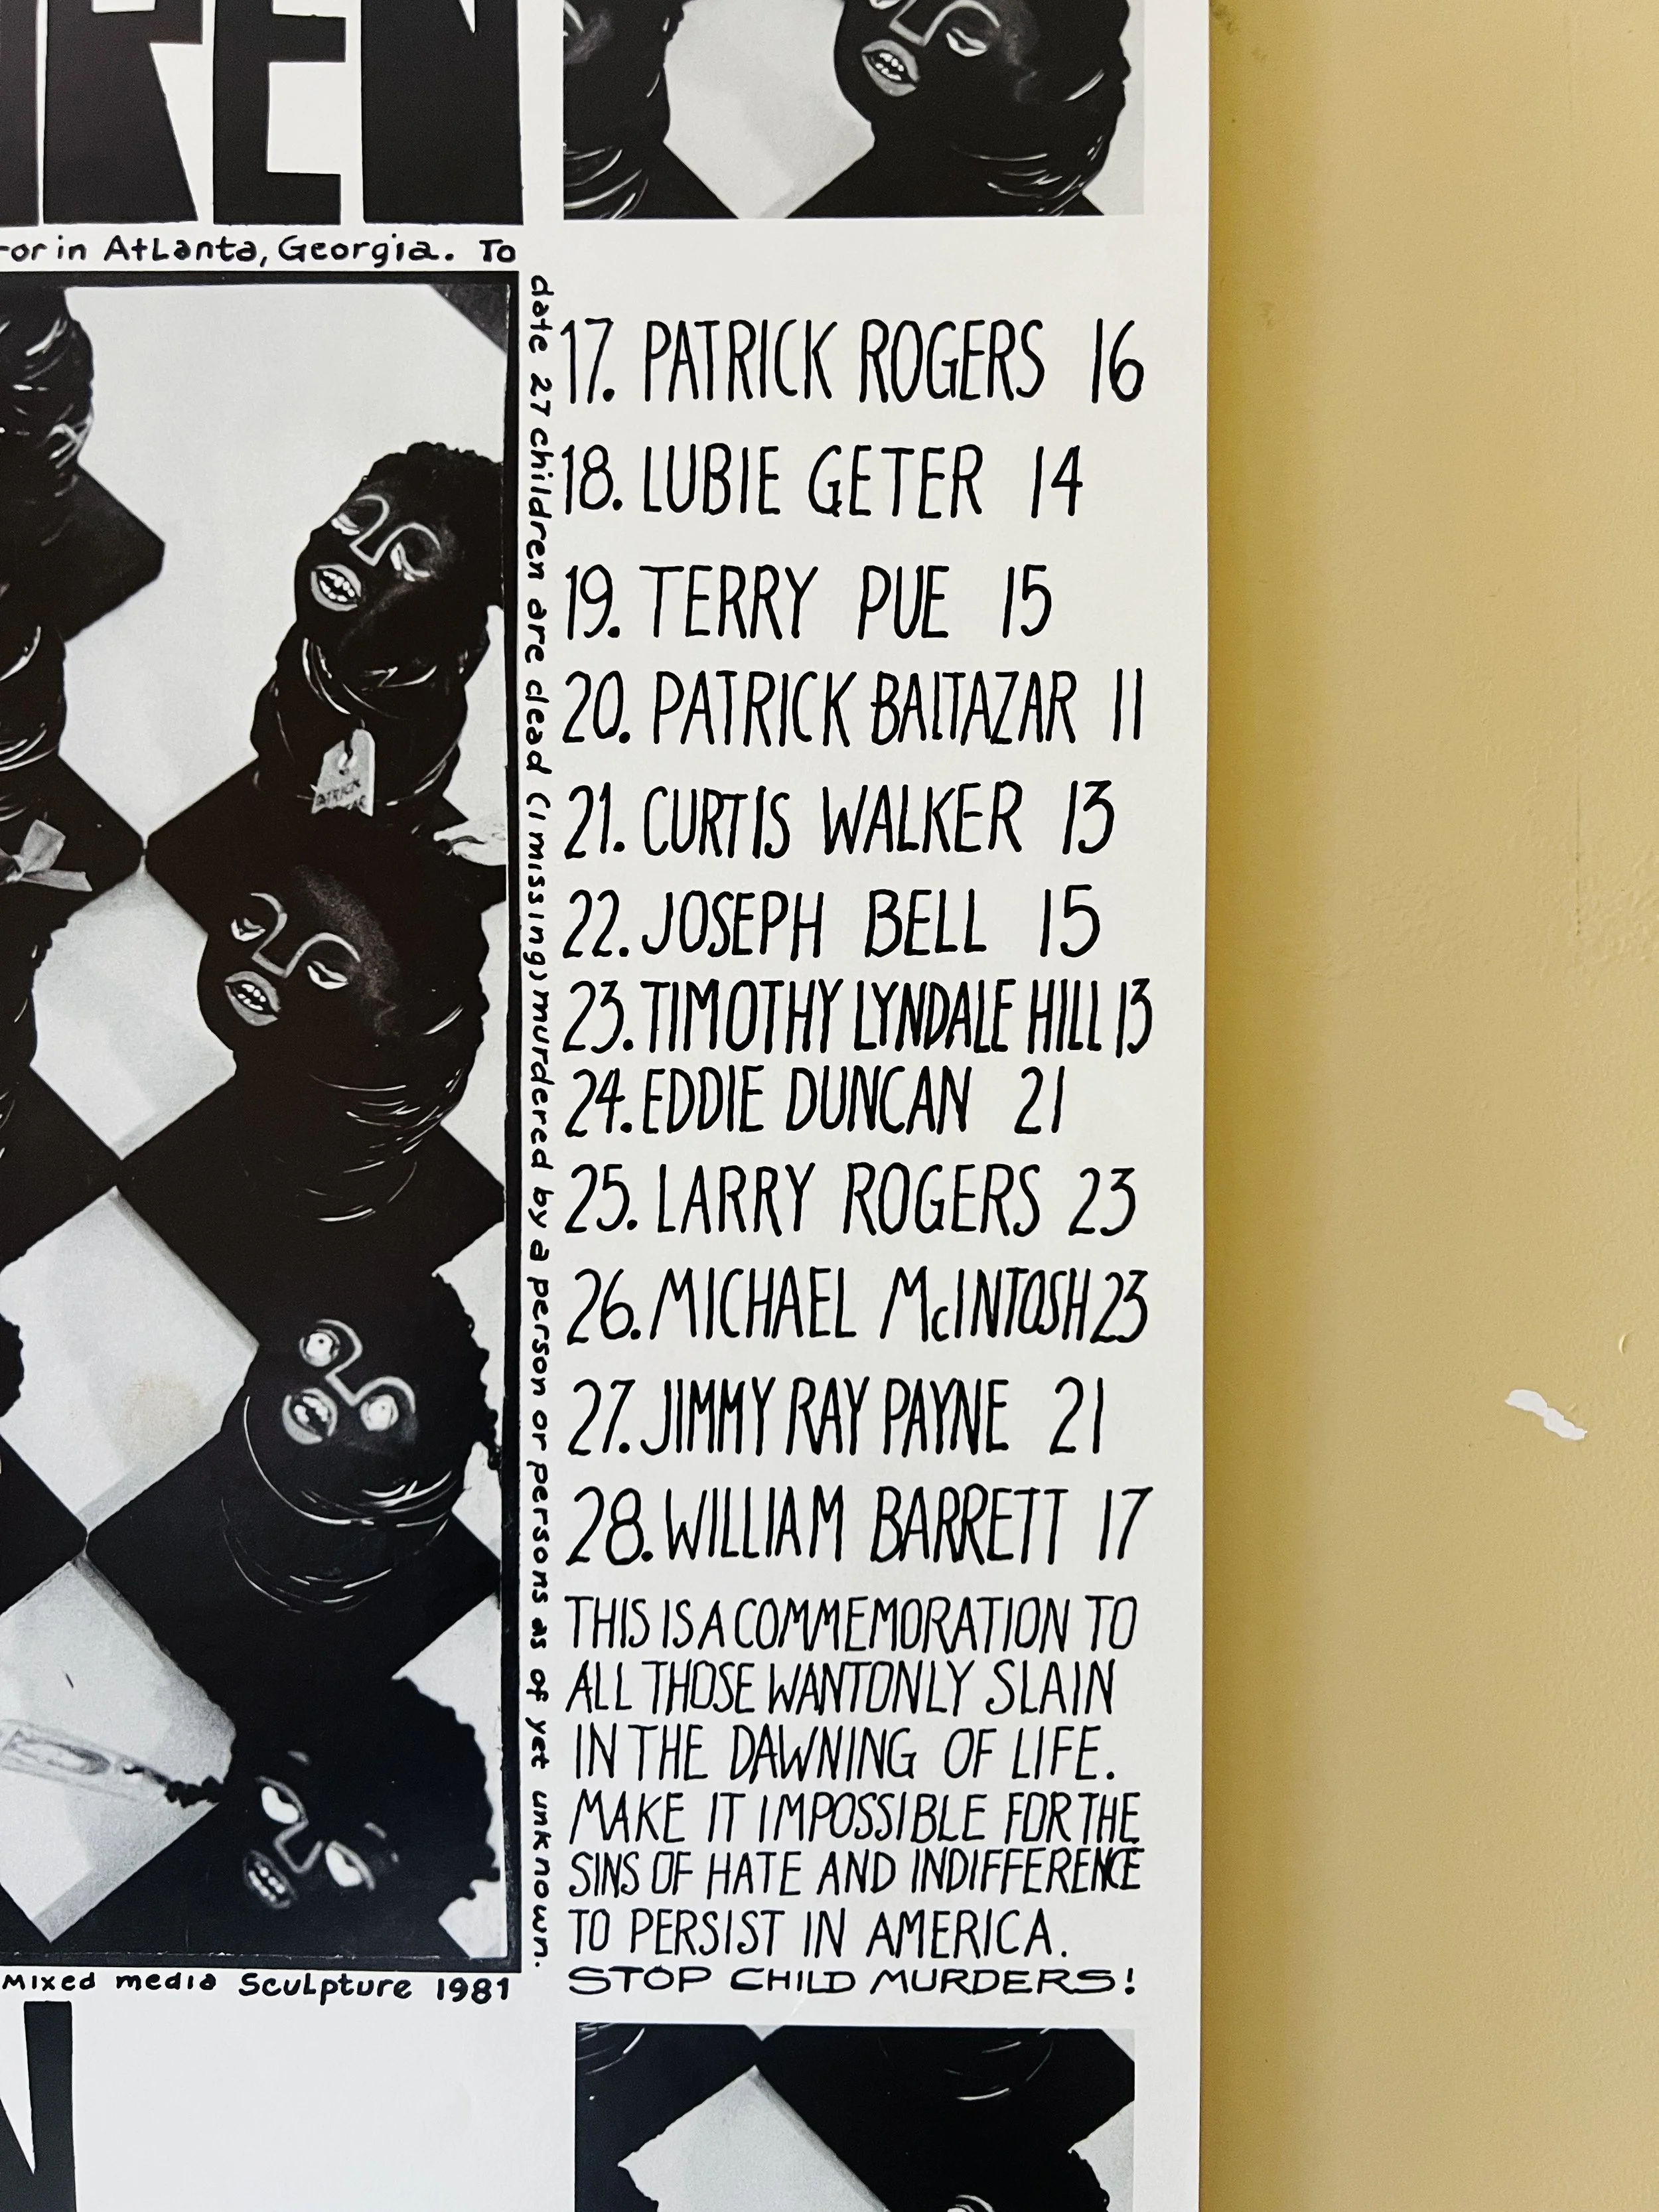 REN
or in Atlanta, Georgia. To
date 27 children are dead (1 missing) murdered by a person or persons as of yet unknown.
17. PATRICK ROGERS 16
18. LUBIE GETER 14
19. TERRY PUE 15
20. PATRICK BALTAZAR 11
21. CURTIS WALKER 13
22. JOSEPH BELL 15
23. TIMOTHY LYNDALE HILL 13
24. EDDIE DUNCAN 21
25. LARRY ROGERS 23
26. MICHAEL McINTOSH 23
27. JIMMY RAY PAYNE 21
28. WILLIAM BARRETT 17
THIS IS A COMMEMORATION TO
ALL THOSE WANTONLY SLAIN
IN THE DAWNING OF LIFE.
MAKE IT IMPOSSIBLE FOR THE
SINS OF HATE AND INDIFFERENCE
TO PERSIST IN AMERICA.
STOP CHILD MURDERS!
Mixed media Sculpture 1981